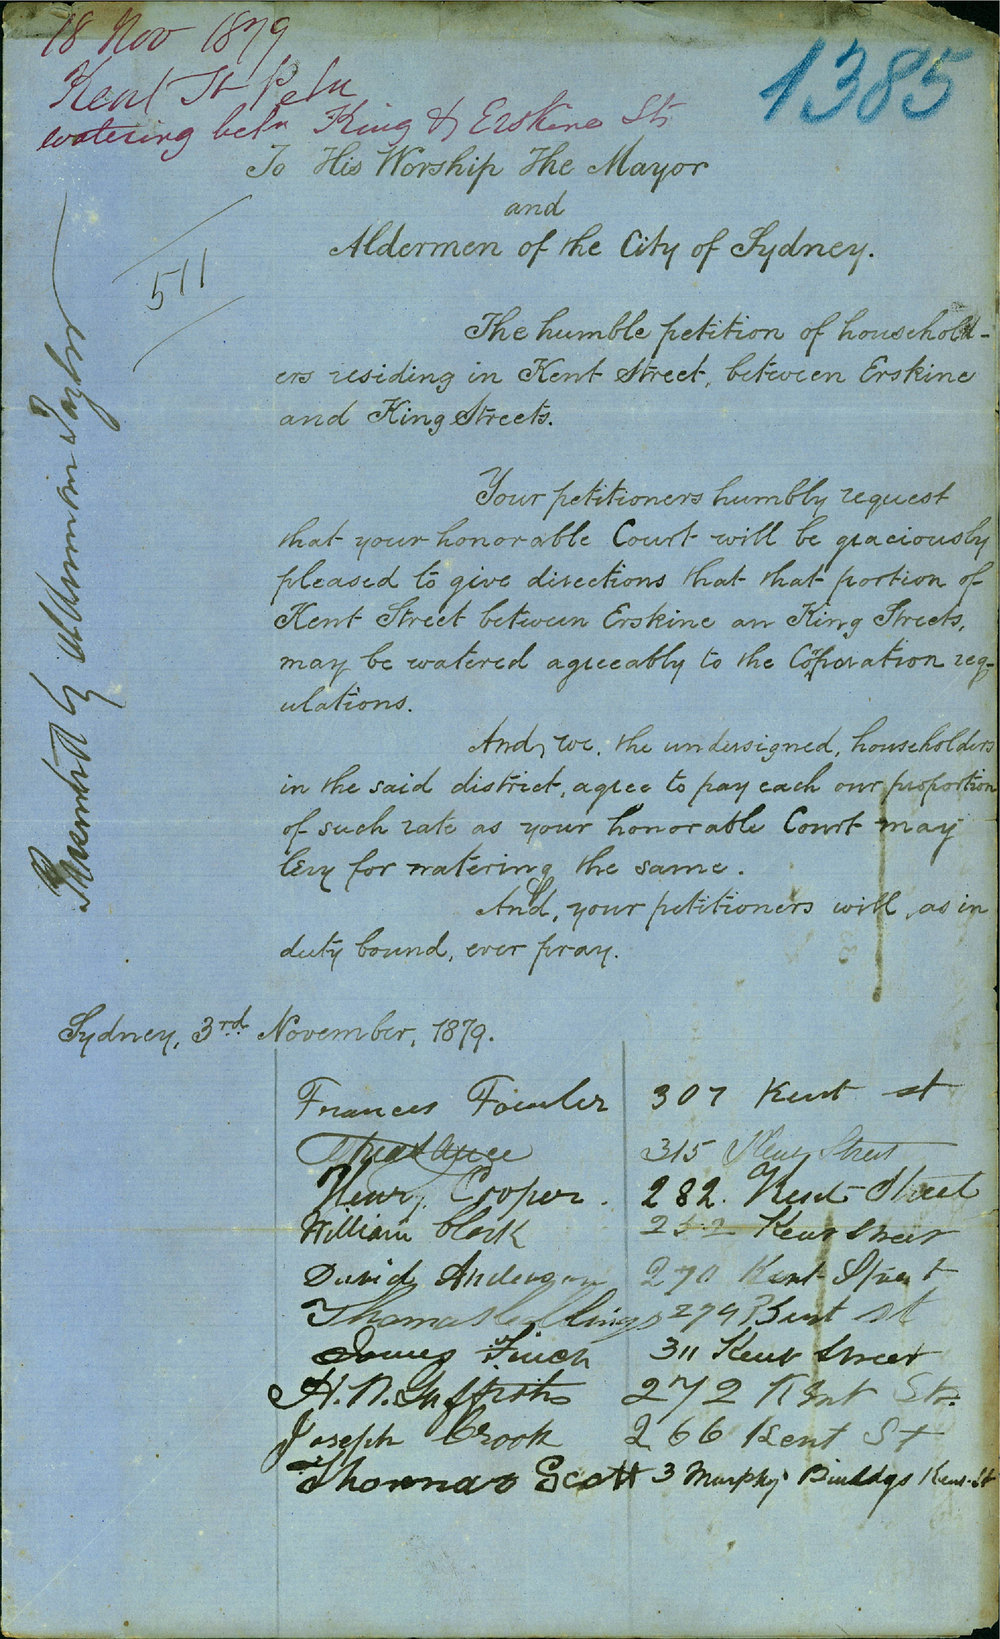 18 Nov 1879
Kent St Petn
watering betn King & Erskine Sts
1385
To His Worship The Mayor
and
Aldermen of the City of Sydney.
511
Presented by Alderman Taylor
The humble petition of household-
ers residing in Kent Street, between Erskine
and King Streets.
Your petitioners humbly request
that your honorable Court will be graciously
pleased to give directions that that portion of
Kent Street between Erskine an King Streets,
may be watered agreeably to the Corporation reg-
ulations.
And, we, the undersigned, householders
in the said district, agree to pay each our proportion
of such rate as your honorable Court may
levy for watering the same.
And, your petitioners will, as in
duty bound, ever pray.
Sydney, 3rd November, 1879.
Frances Fowler 307 Kent st
315 Kent Street
Henry Cooper. 282. Kent Street
William Clark 252 Kent Street
David Anderson 270 Kent Street
Thomas Collings 279 Kent st
James Finch 311 Kent Street
H. N. Griffiths 272 Kent Str.
Joseph Crook 266 Kent St
Thomas Scott 3 Murphy Buildgs Kent St